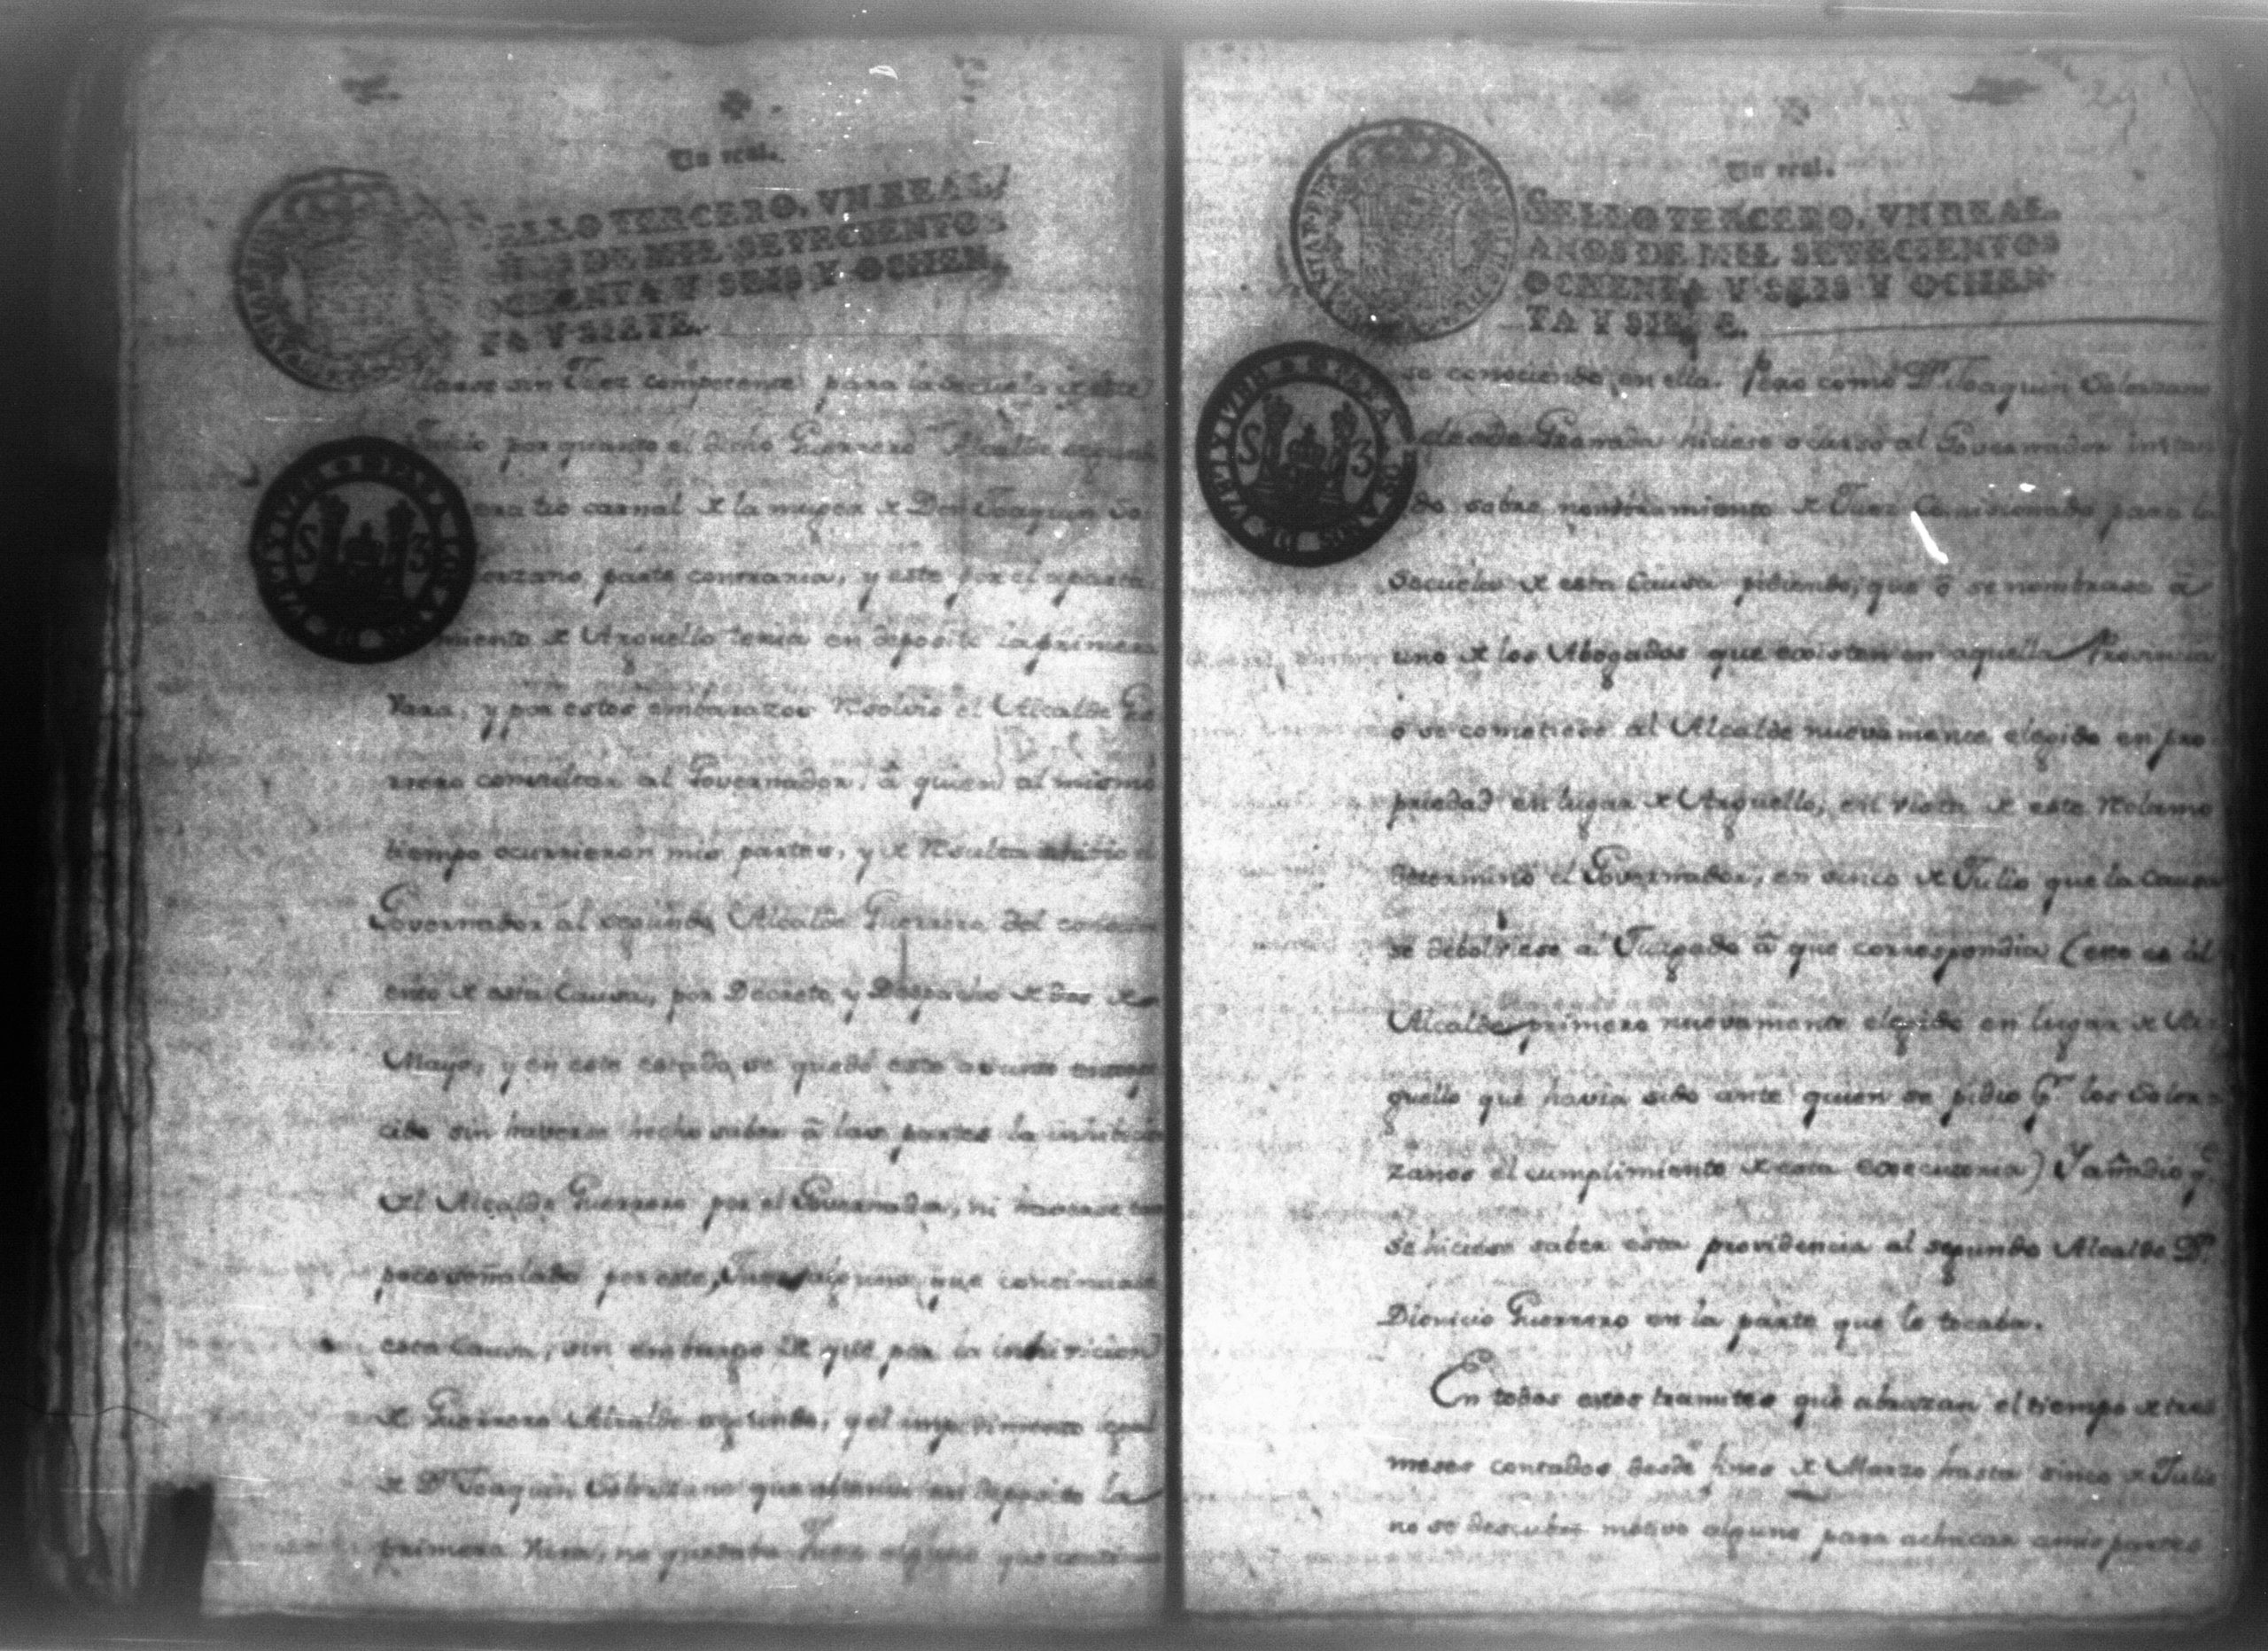 Un real.
SELLO TERCERO, VN REAL,
AÑOS DE MIL SETECIENTOS
OCHENTA Y SEIS Y OCHEN-
TA Y SIETE.
sin Juez competente para la secuela de este
Juicio por quanto el dicho Guerrero Alcalde segundo
era tio carnal de la muger de Don Joaquin So
lorzano, parte contraria, y este por el aparta
miento de Arguello tenia en deposito la primera
Vara, y por estos embarazos resolvió el Alcalde Gue
rrero consultar al Governador, â quien al mismo
tiempo ocurrieron mis partes, y de resulta inhibió el
Governador al segundo Alcalde Guerrero del conosim
ento de esta Causa, por Decreto, y Despacho de dos de
Mayo, y en este estado se quedó este asunto
sin haverse hecho saber â las partes la inhibicion
del Alcalde Guerrero por el Governador, ni haverse tam
poco señalado por este, Juez alguno que continuase
esta Causa, sin embargo de que por la inhivicion
de Guerrero Alcalde segundo, y el impedimento
de Dn Joaquin Solorzano que obtenia en deposito la
primera Vara, no quedaba Juez alguno que continua
Un real.
SELLO TERCERO, VN REAL,
AÑOS DE MIL SETECIENTOS
OCHENTA Y SEIS Y OCHEN-
TA Y SIETE.
se conociendo en ella. Pero como Dn Joaquin Solorzano
desde Granada hiciese ocurso al Governador instan
do sobre nombramiento de Juez Comisionado para la
Secuela de esta Causa pidiendo, que ô se nombrase â
uno de los Abogados que existen en aquella Provincia
ô se cometiese al Alcalde nuevamente elegido en pro
priedad en lugar de Arguello, en vista de este reclamo
determinó el Governador, en sinco de Julio que la Causa
se debolviese al Juzgado â que correspondia (esto es al
Alcalde primero nuevamente elegido en lugar de Ar
guello que havia sido ante quien se pidio pr. los Solor
zanos el cumplimiento de esta Executoria) Y añadio qe.
se hiciese saber esta providencia al segundo Alcalde Dn.
Dionicio Guerrero en la parte que le tocaba.
En todos estos tramites que abrazan el tiempo de tres
meses contados desde fines de Marzo hasta sinco de Julio
no se descubre motivo alguno para achacar a mis partes